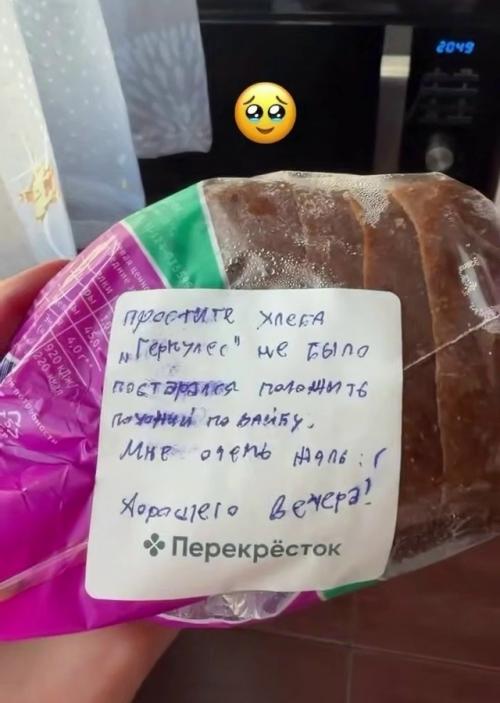 2049
простите хлеба
„Геркулес" не было
постарался положить
похожий по вайбу.
Мне очень жаль :(
Хорошего вечера!
Перекрёсток